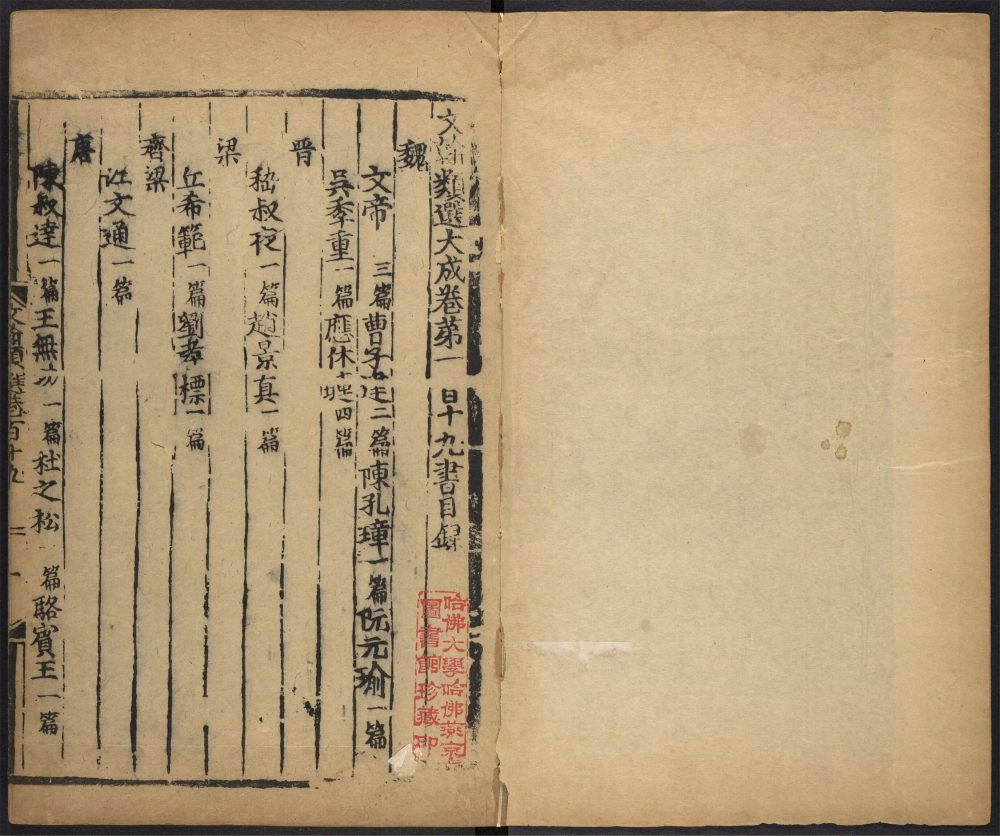 文翰類選大成卷第一百十九書目録
魏
文帝 三篇 曹子建 二篇 陳孔璋 一篇 阮元瑜 一篇
吳季重 一篇 應休璉 四篇
晉
嵇叔夜 一篇 趙景真 一篇
梁
丘希範 一篇 劉孝標 一篇
齊梁
江文通 一篇
唐
陳叔達 一篇 王無功 一篇 杜之松 篇 駱賓王 一篇
文翰類選卷百十九 一
哈佛大學哈佛燕京
圖書館珍藏印